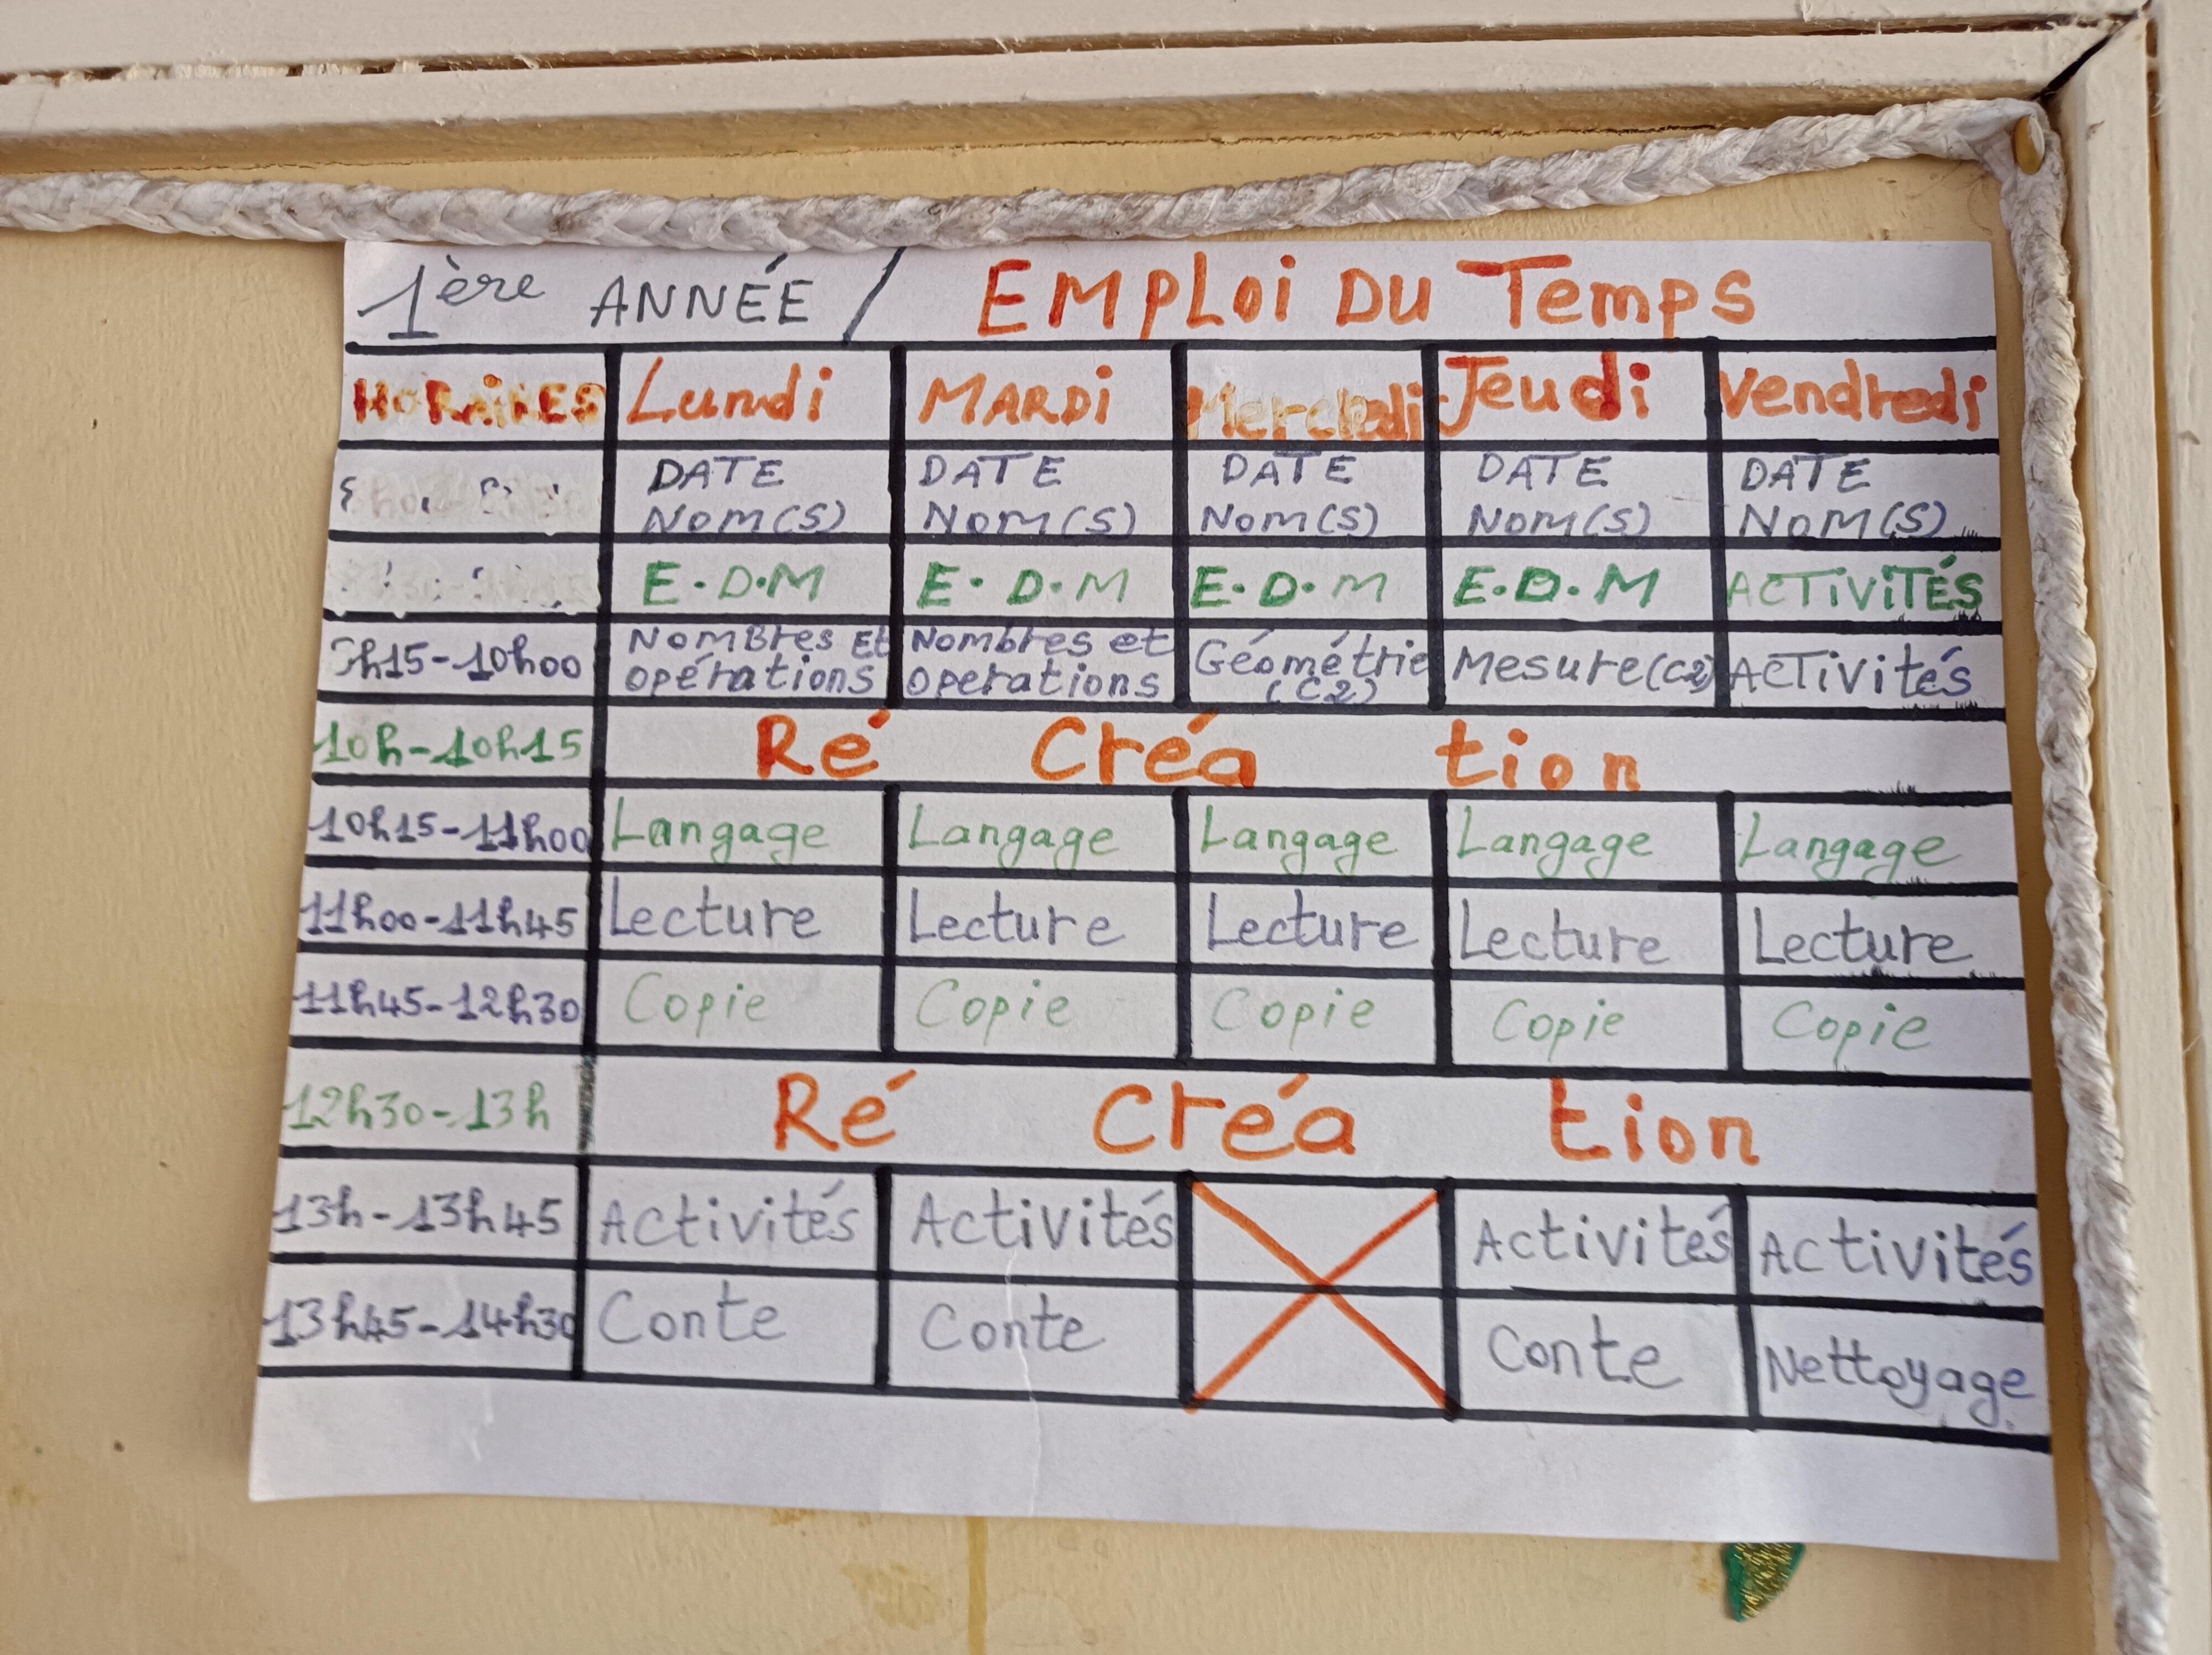 1ère ANNÉE / EMPLOI DU Temps
HORAIRES Lundi MARDI Mercredi Jeudi Vendredi
DATE DATE DATE DATE DATE
NOM(S) NOM(S) NOM(S) NOM(S) NOM(S)
E.D.M E.D.M E.D.M E.D.M ACTIVITÉS
h15-10h00 NOMBRES ET Nombres et Géométrie Mesure(C2) ACTIVITÉS
opérations operations (C2)
10h-10h15 Ré Créa tion
10h15-11h00 Langage Langage Langage Langage Langage
11h00-11h45 Lecture Lecture Lecture Lecture Lecture
11h45-12h30 Copie Copie Copie Copie Copie
12h30-13h Ré Créa tion
13h-13h45 Activités Activités Activités Activités
13h45-14h30 Conte Conte Conte Nettoyage